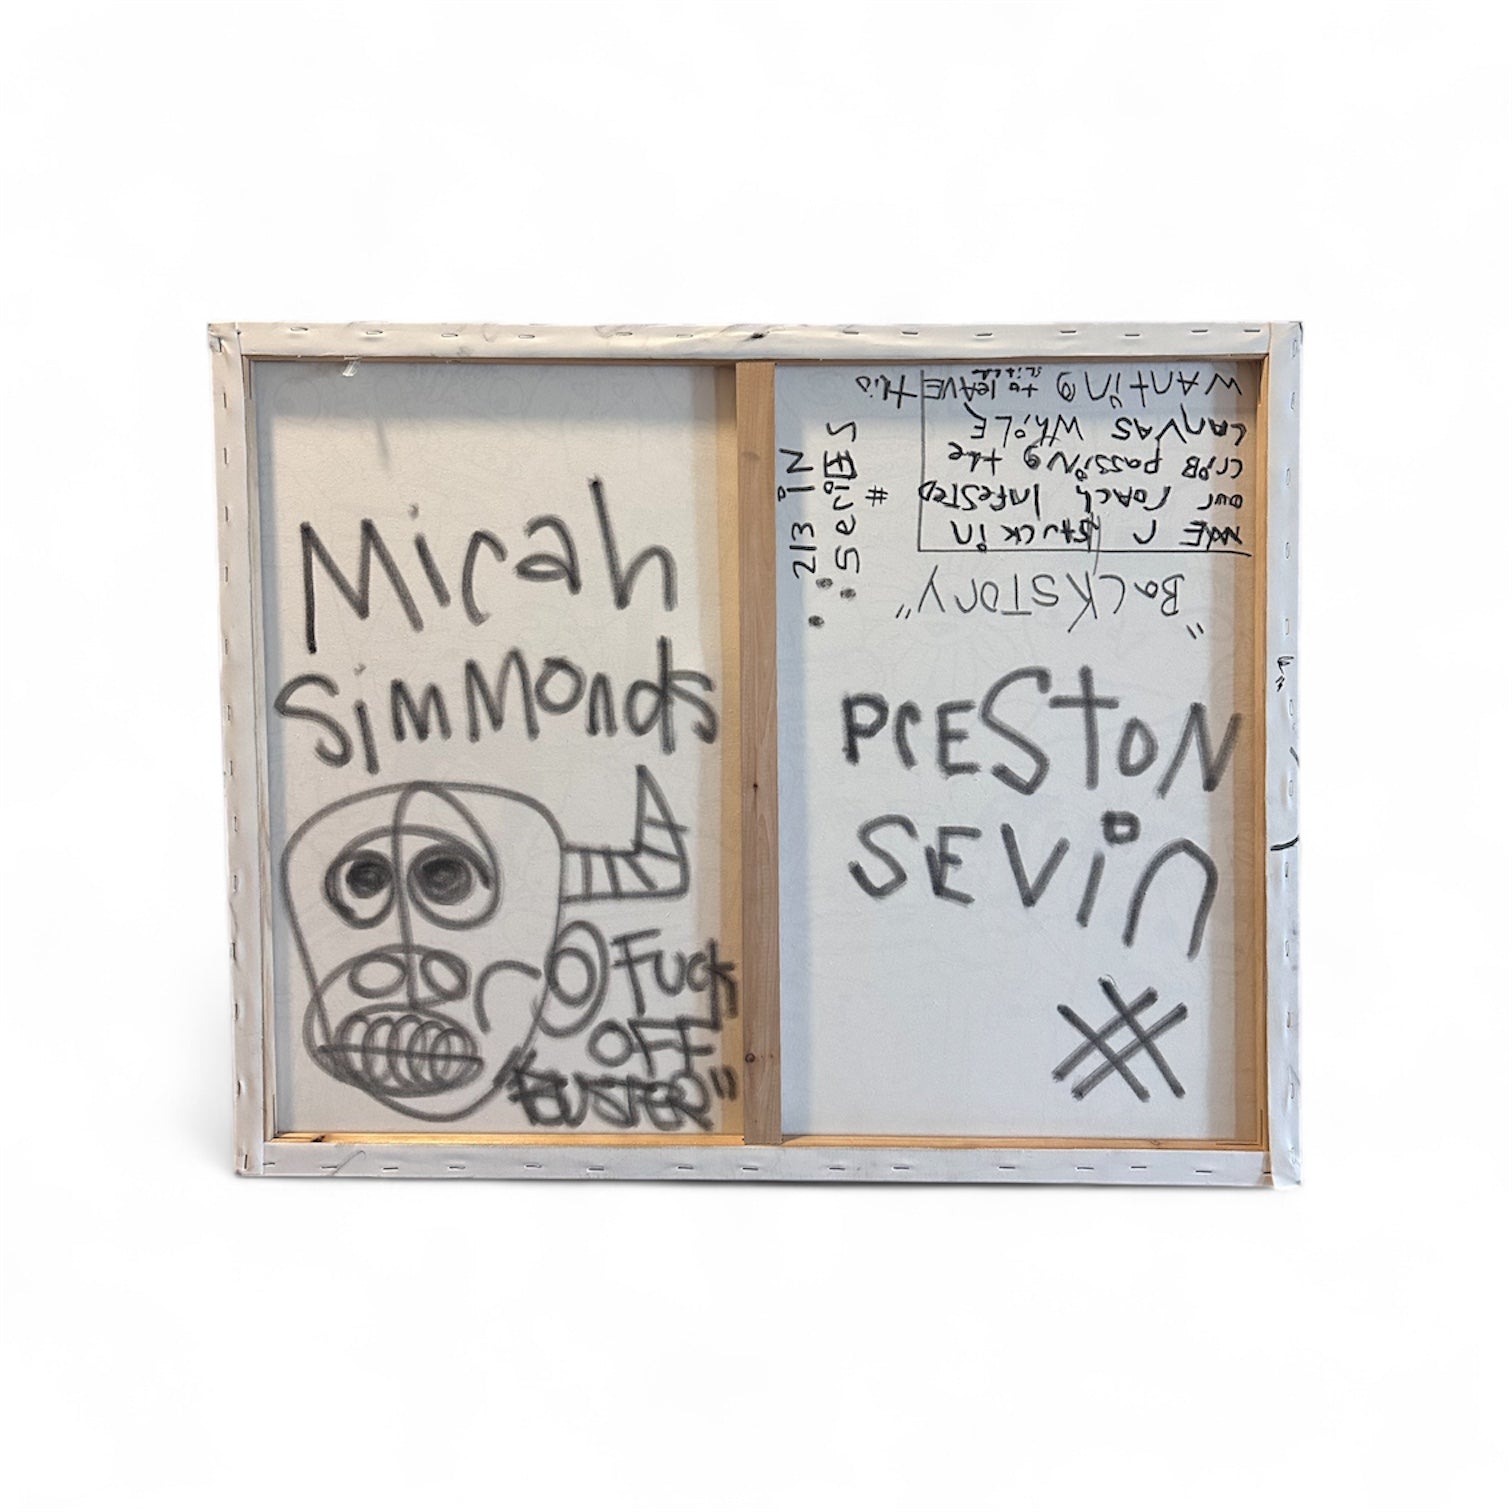 Micah
SimMonds
Fuck
OFF
"BUSTER"
PrESTON
SEVin
#
"BacKSTOrY"
r stuck in
our roach infested
criB passiNg the
CANVAS WhoLE
WANtiNg to leAVE this
2/3 iN
SeriES
#